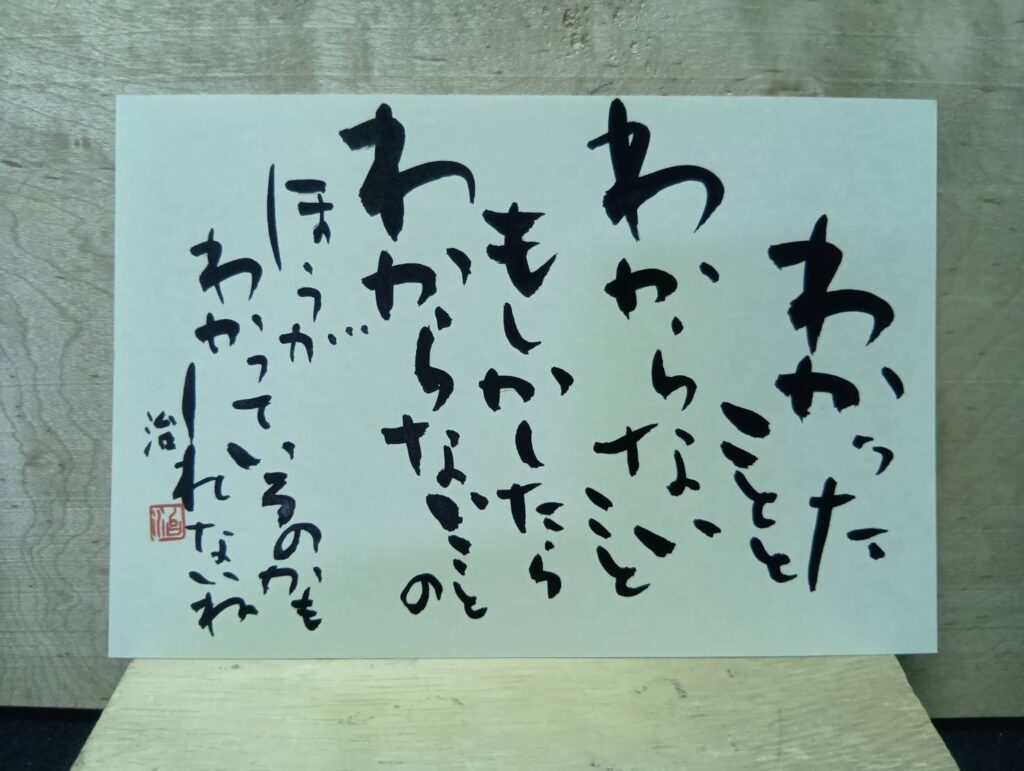 わかった
ことと
わからない
こと
もしかしたら
わからないこと
の
ほうが
わかっているのかも
しれないね
治
治